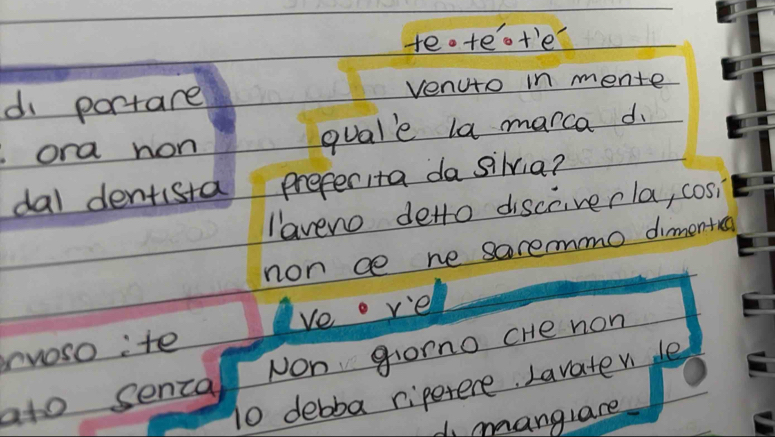 te • té • t'é
di portare
venuto in mente
: ora non
qual'è la marca di
dal dentista
preferita da silvia?
l'aveno detto discriverla, così
non ce ne saremmo dimentica
ve • v'è
ervoso : te
Non giorno CHE non
ato senza
lo debba ripetere. Lavatevi le
di mangiare